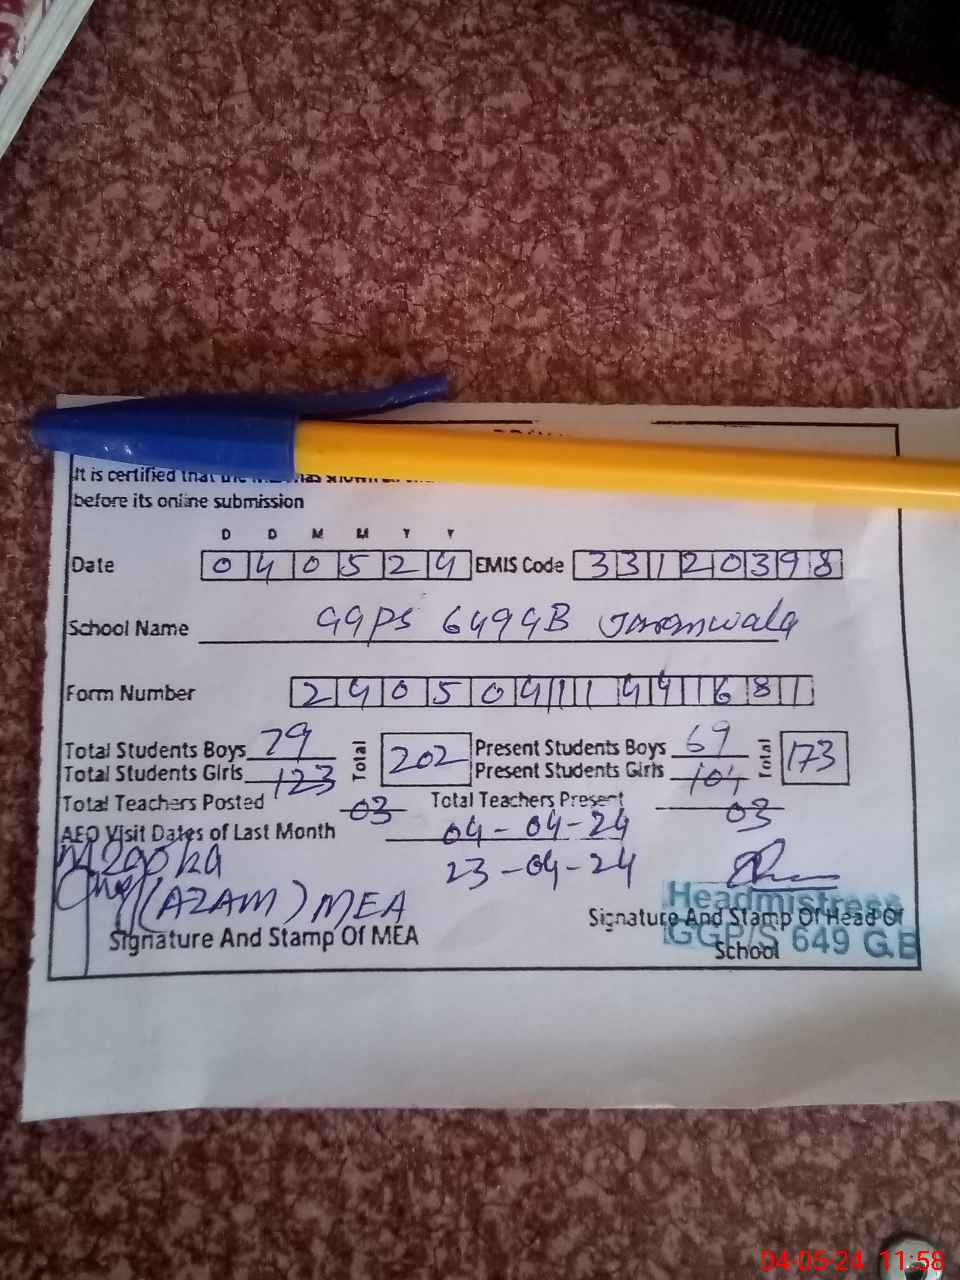 It is certified that the
before its online submission
D D M M Y Y
Date 040524 EMIS Code 33120398
School Name GGPS 649GB Jaranwala
Form Number 24050411441681
Total Students Boys 79 Total 202 Present Students Boys 69 Total 173
Total Students Girls 123 Present Students Girls 104
Total Teachers Posted 03 Total Teachers Present 03
AEO Visit Dates of Last Month 04-04-24
23-04-24
(AZAM) MEA
Signature And Stamp Of MEA
Headmistress
Signature And Stamp Of Head Of
School
GGP/S 649 G.B
04-05-24 11:58